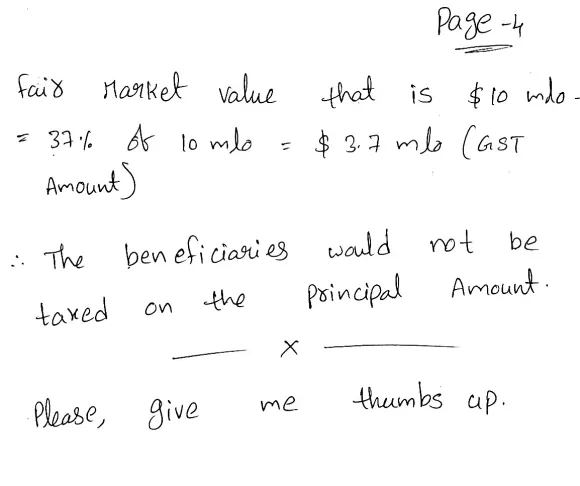 Page-4
Fair Market value that is $10 mlo -
= 37% of 10 mlo = $ 3.7 mlo (GST
Amount)
∴ The beneficiaries would not be
taxed on the principal Amount.
—— x ——
Please, give me thumbs up.